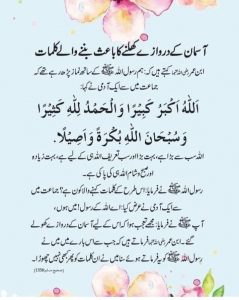 آسمان کے دروازے کھلنے کا باعث بننے والے کلمات
ابن عمر رضی اللہ عنہما کہتے ہیں کہ: ہم رسول اللہ ﷺ کے ساتھ نماز پڑھ رہے تھے کہ
جماعت میں سے ایک آدمی نے کہا:
اَللّٰهُ اَكْبَرُ كَبِيْرًا وَالْحَمْدُ لِلّٰهِ كَثِيْرًا
وَسُبْحَانَ اللّٰهِ بُكْرَةً وَاَصِيْلًا.
اللہ سب سے بڑا ہے، بہت بڑا اور سب تعریف اللہ ہی کے لیے ہے، بہت زیادہ
اور صبح و شام اللہ ہی کی پاکی ہے۔
رسول اللہ ﷺ نے فرمایا: اس طرح کے کلمات کہنے والا کون ہے؟ جماعت میں
سے ایک آدمی نے عرض کیا: اے اللہ کے رسول! میں ہوں،
آپ ﷺ نے فرمایا: مجھے تعجب ہوا کہ اس کے لیے آسمان کے دروازے کھولے
گئے۔ ابن عمر رضی اللہ عنہما فرماتے ہیں کہ: جب سے اس بارے میں میں نے
رسول اللہ ﷺ کو یہ فرماتے ہوئے سنا میں نے ان کلمات کو پھر کبھی نہیں چھوڑا۔
(صحیح مسلم: 1358)